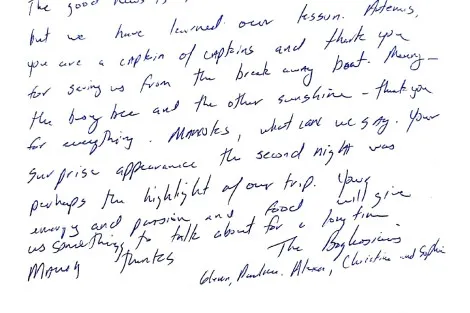 The good news is
but we have learned our lesson. Artemis,
you are a captain of captains and thank you
for saving us from the break away boat. 
the busy bee and the other sunshine - thank you
for everything. Manolis, what can we say. Your
surprise appearance the second night was
perhaps the highlight of our trip. Your
energy and passion and food will give
us something to talk about for a long time
Many thanks The Boghossians
Pauline, Alexa, Christine and Sophie